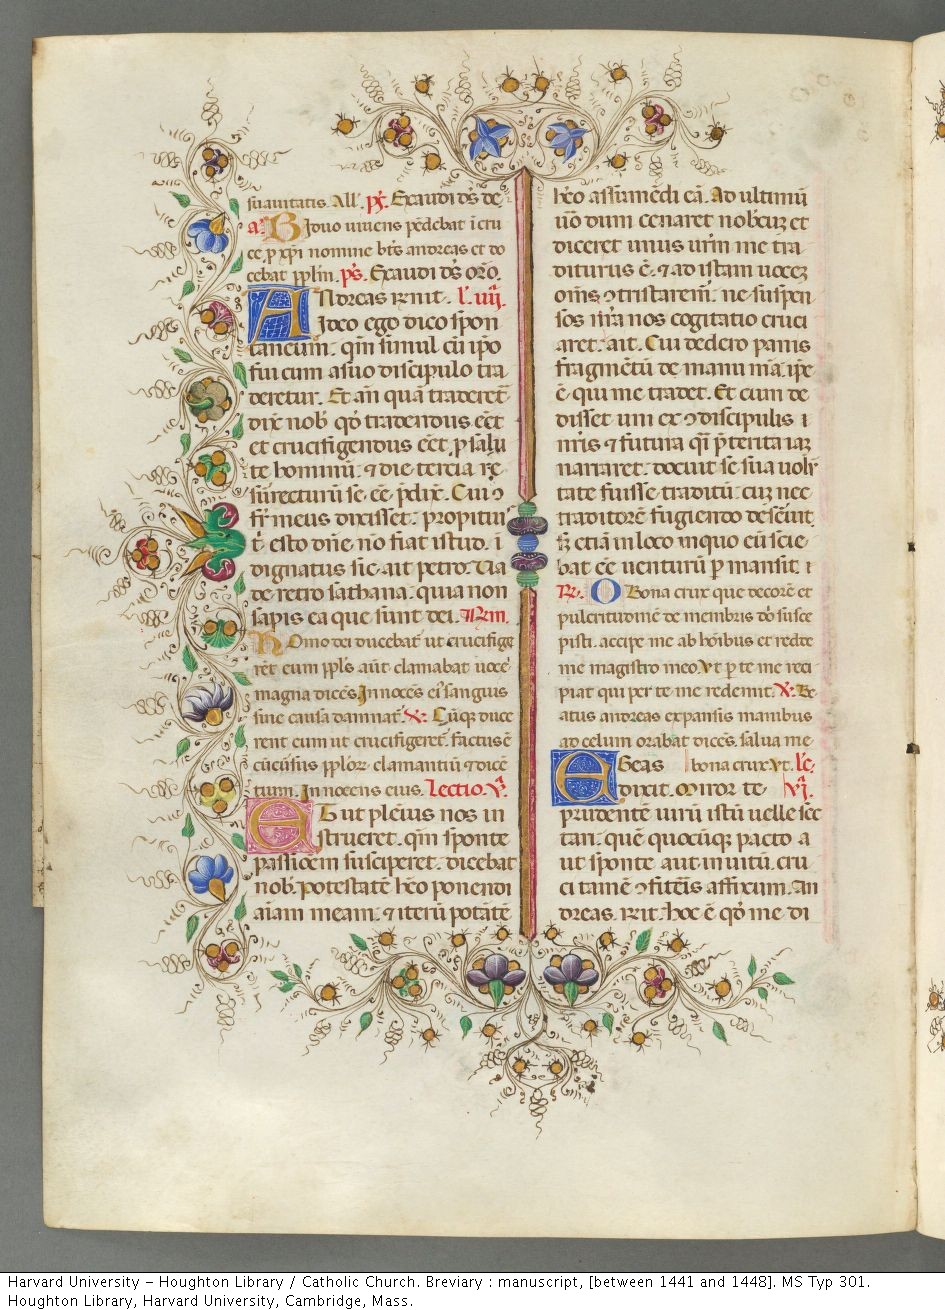 suauitatis. All'. ps̄. Exaudi ds̄ de
a. Biduo uiuens pēdebat ī cru
ce, ꝑ xp̄i nomine bt̄s andreas et do
cebat pplm̄. ps̄. Exaudi ds̄ orō.
ANdreas rn̄it. l. iiij.
Ideo ego dico spon
taneum. qm̄ simul cū ipō
fui cum a suo discipulo tra
deretur. Et añ quā traderet᷑
dix̄ nob̄ qō tradendus eēt
et crucifigendus eēt, ꝑ salu
te hominū. ⁊ die tercia re
surrecturū se eē p̄dix̄. Cui ꝯ
fr̄ meus dixisset. propitiu
t̄ esto dn̄e nō fiat istud. ī
dignatus sic ait petro. Uā
de retro sathana. quia non
sapis ea que sunt dei.
HOmo dei ducebat᷑ ut crucifige
rēt eum ppls̄ aūt clamabat uoce
magna dicēs. Innocēs ei' sanguis
sine causa damnat᷑. ℣. Cūq̧ duce
rent eum ut crucifigeret᷑. factus ē
cūcursus pplōꝝ clamantiū ⁊ dicē
tium. Innocens eius. Lectio. v̄.
ET ut pleius nos in
strueret. qm̄ sponte
passiōem susciperet. dicebat
nob̄. Potestatē hēo ponendi
aīam meam. ⁊ iterū potāte
hēo assumēdi eā. Ad ultimū
uō dum cenaret nobcuȝ et
diceret unus urm̄ me tra
diturus ē. ⁊ ad istam uoceȝ
om̄s ꝯtristarem᷑. ne suspen
sos mn̄a nos cogitatio cruci
aret. ait. Cui dedero panis
fragmētū de manu mā. ip̄e
ē. qui me tradet. Et cum de
disset uni ex ꝯdiscipulis
nr̄is ⁊ futura q̄i p̄terita iaȝ
narraret. docuit se sua uolū
tate fuisse traditū. cuȝ nec
traditorē fugiendo deseruit,
s̄ etiā in loco in quo eū scie
bat eē uenturū ꝑmansit.
℟. O Bona crux que decorē et
pulcritudinē de membris dn̄i susce
pisti. accipe me ab hōibus et redde
me magistro meo. Vt ꝑ te me reci
piat qui per te me redemit. ℣. Be
atus andreas expansis manibus
ad celum orabat dicēs. salua me
EGeas bona crux. Vt. lc̄.
dixit. Miror te vj.
prudentē uirū istū uelle sec
tari. quē quocūq̧ pacto a
ut sponte aut inuitū. cru
ci tamē ꝯfiteris affixum. An
dreas. rn̄it. hoc ē qō me di
Harvard University – Houghton Library / Catholic Church. Breviary : manuscript, [between 1441 and 1448]. MS Typ 301.
Houghton Library, Harvard University, Cambridge, Mass.